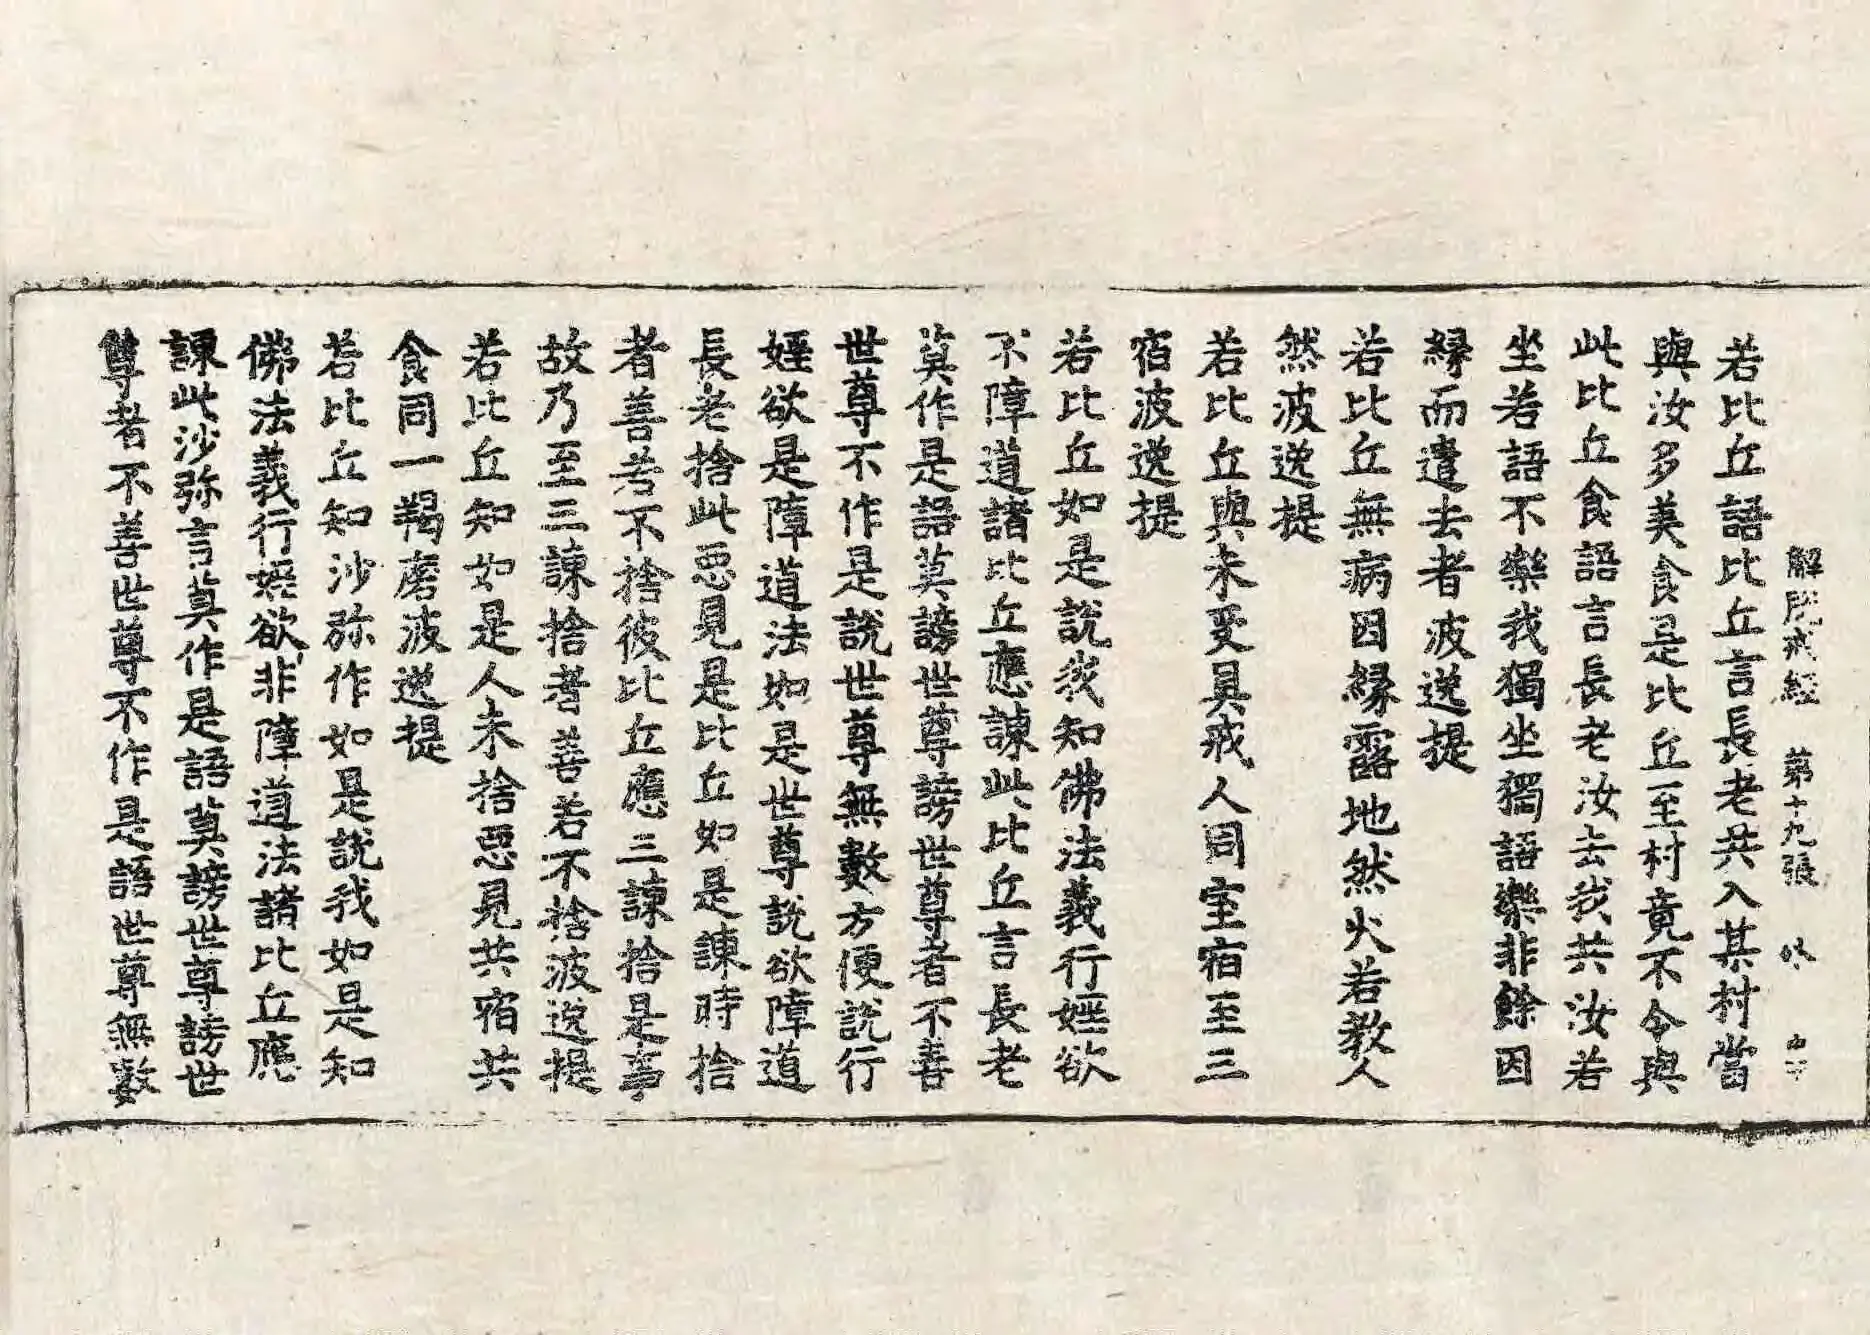 解脫戒經 第十九張
若比丘語比丘言長老共入某村當
與汝多美食是比丘至村竟不令與
此比丘食語言長老汝去我共汝若
坐若語不樂我獨坐獨語樂非餘因
緣而遣去者波逸提
若比丘無病因緣露地然火若教人
然波逸提
若比丘與未受具戒人同室宿至三
宿波逸提
若比丘如是說我知佛法義行婬欲
不障道諸比丘應諫此比丘言長老
莫作是語莫謗世尊謗世尊者不善
世尊不作是說世尊無數方便說行
婬欲是障道法如是世尊說欲障道
長老捨此惡見是比丘如是諫時捨
者善若不捨彼比丘應三諫捨是事
故乃至三諫捨者善若不捨波逸提
若比丘知如是人未捨惡見共宿共
食同一羯磨波逸提
若比丘知沙弥作如是說我如是知
佛法義行婬欲非障道法諸比丘應
諫此沙弥言莫作是語莫謗世尊謗世
尊者不善世尊不作是語世尊無數